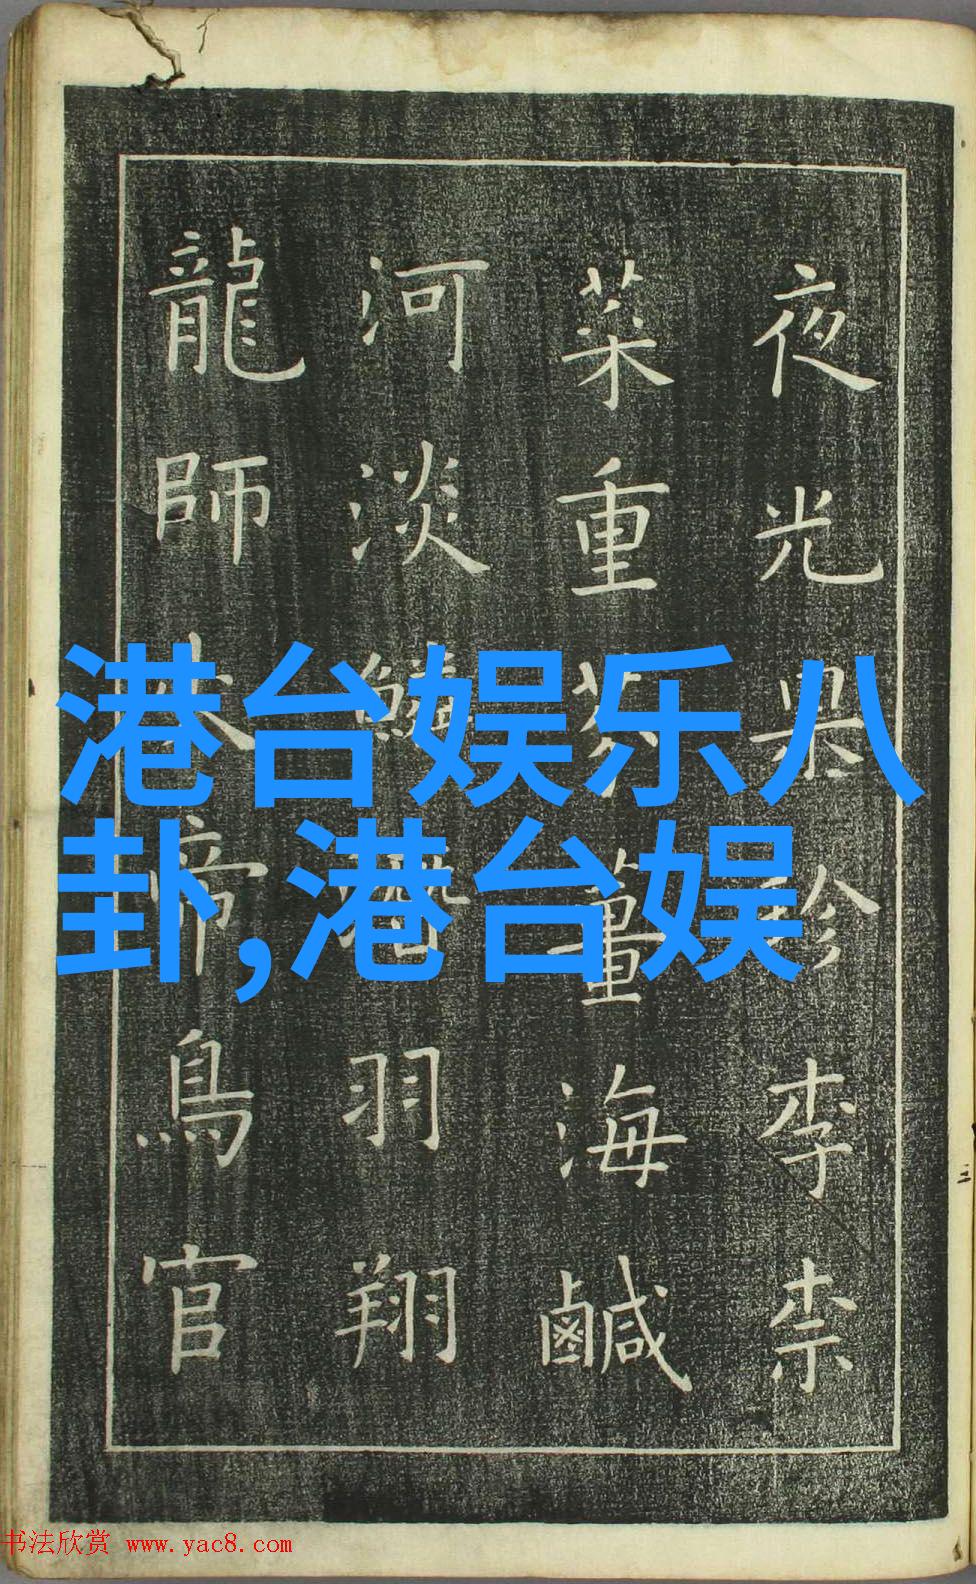 夜光果珍李柰
菜重芥薑海鹹
河淡鱗潛羽翔
龍師火帝鳥官
港台娱乐八
卦,港台娱
书法欣赏 www.yac8.com